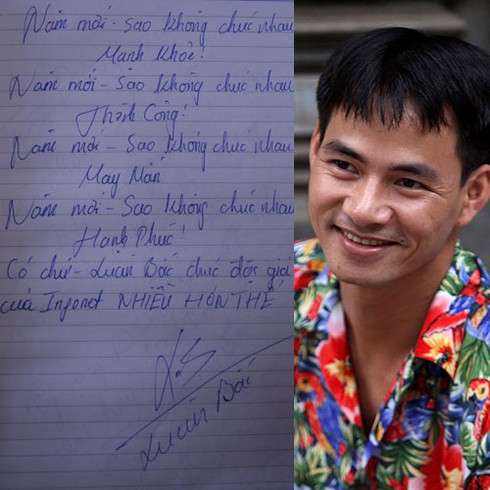 Năm mới - Sao không chúc nhau
Mạnh Khoẻ!
Năm mới - Sao không chúc nhau
Thành Công!
Năm mới - Sao không chúc nhau
May Mắn
Năm mới - Sao không chúc nhau
Hạnh Phúc!
Có chứ - Xuân Bắc chúc độc giả
của Infonet NHIỀU HƠN THẾ
Xuân Bắc